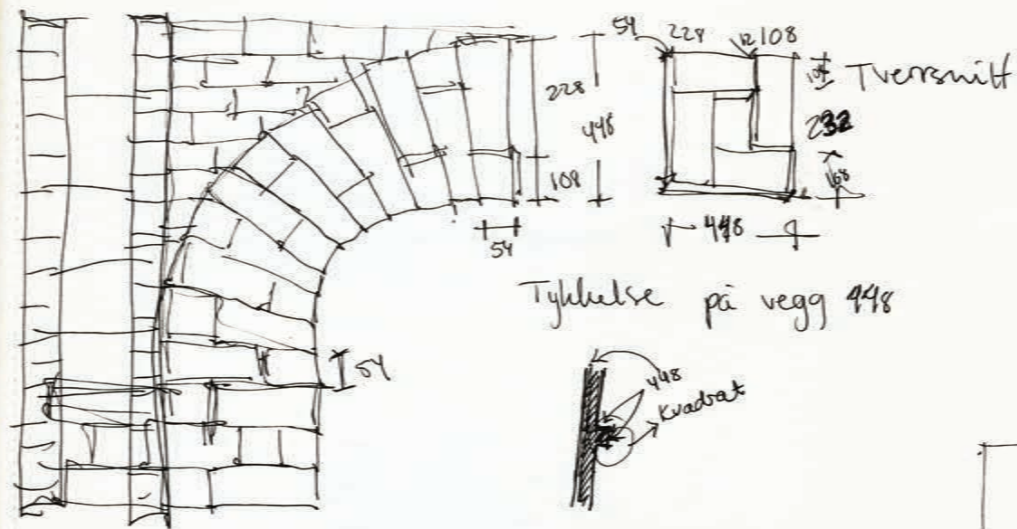 228
448
108
54
54
54 228 12 108
108 Tverrsnitt
232
108
448
Tykkelse på vegg 448
448
Kvadrat